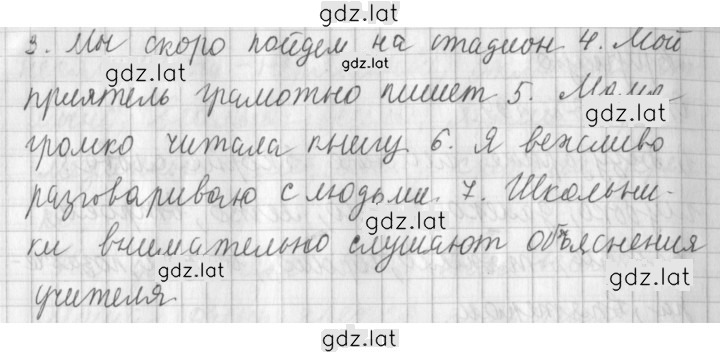 gdz.lat
3. Мы скоро пойдем на стадион 4. Мой
gdz.lat
gdz.lat
приятель грамотно пишет 5. Мама
gdz.lat
громко читала книгу 6. Я вежливо
gdz.lat
разговариваю с людьми. 7. Школьни-
gdz.lat
ки внимательно слушают объяснения
gdz.lat
gdz.lat
учителя.
gdz.lat